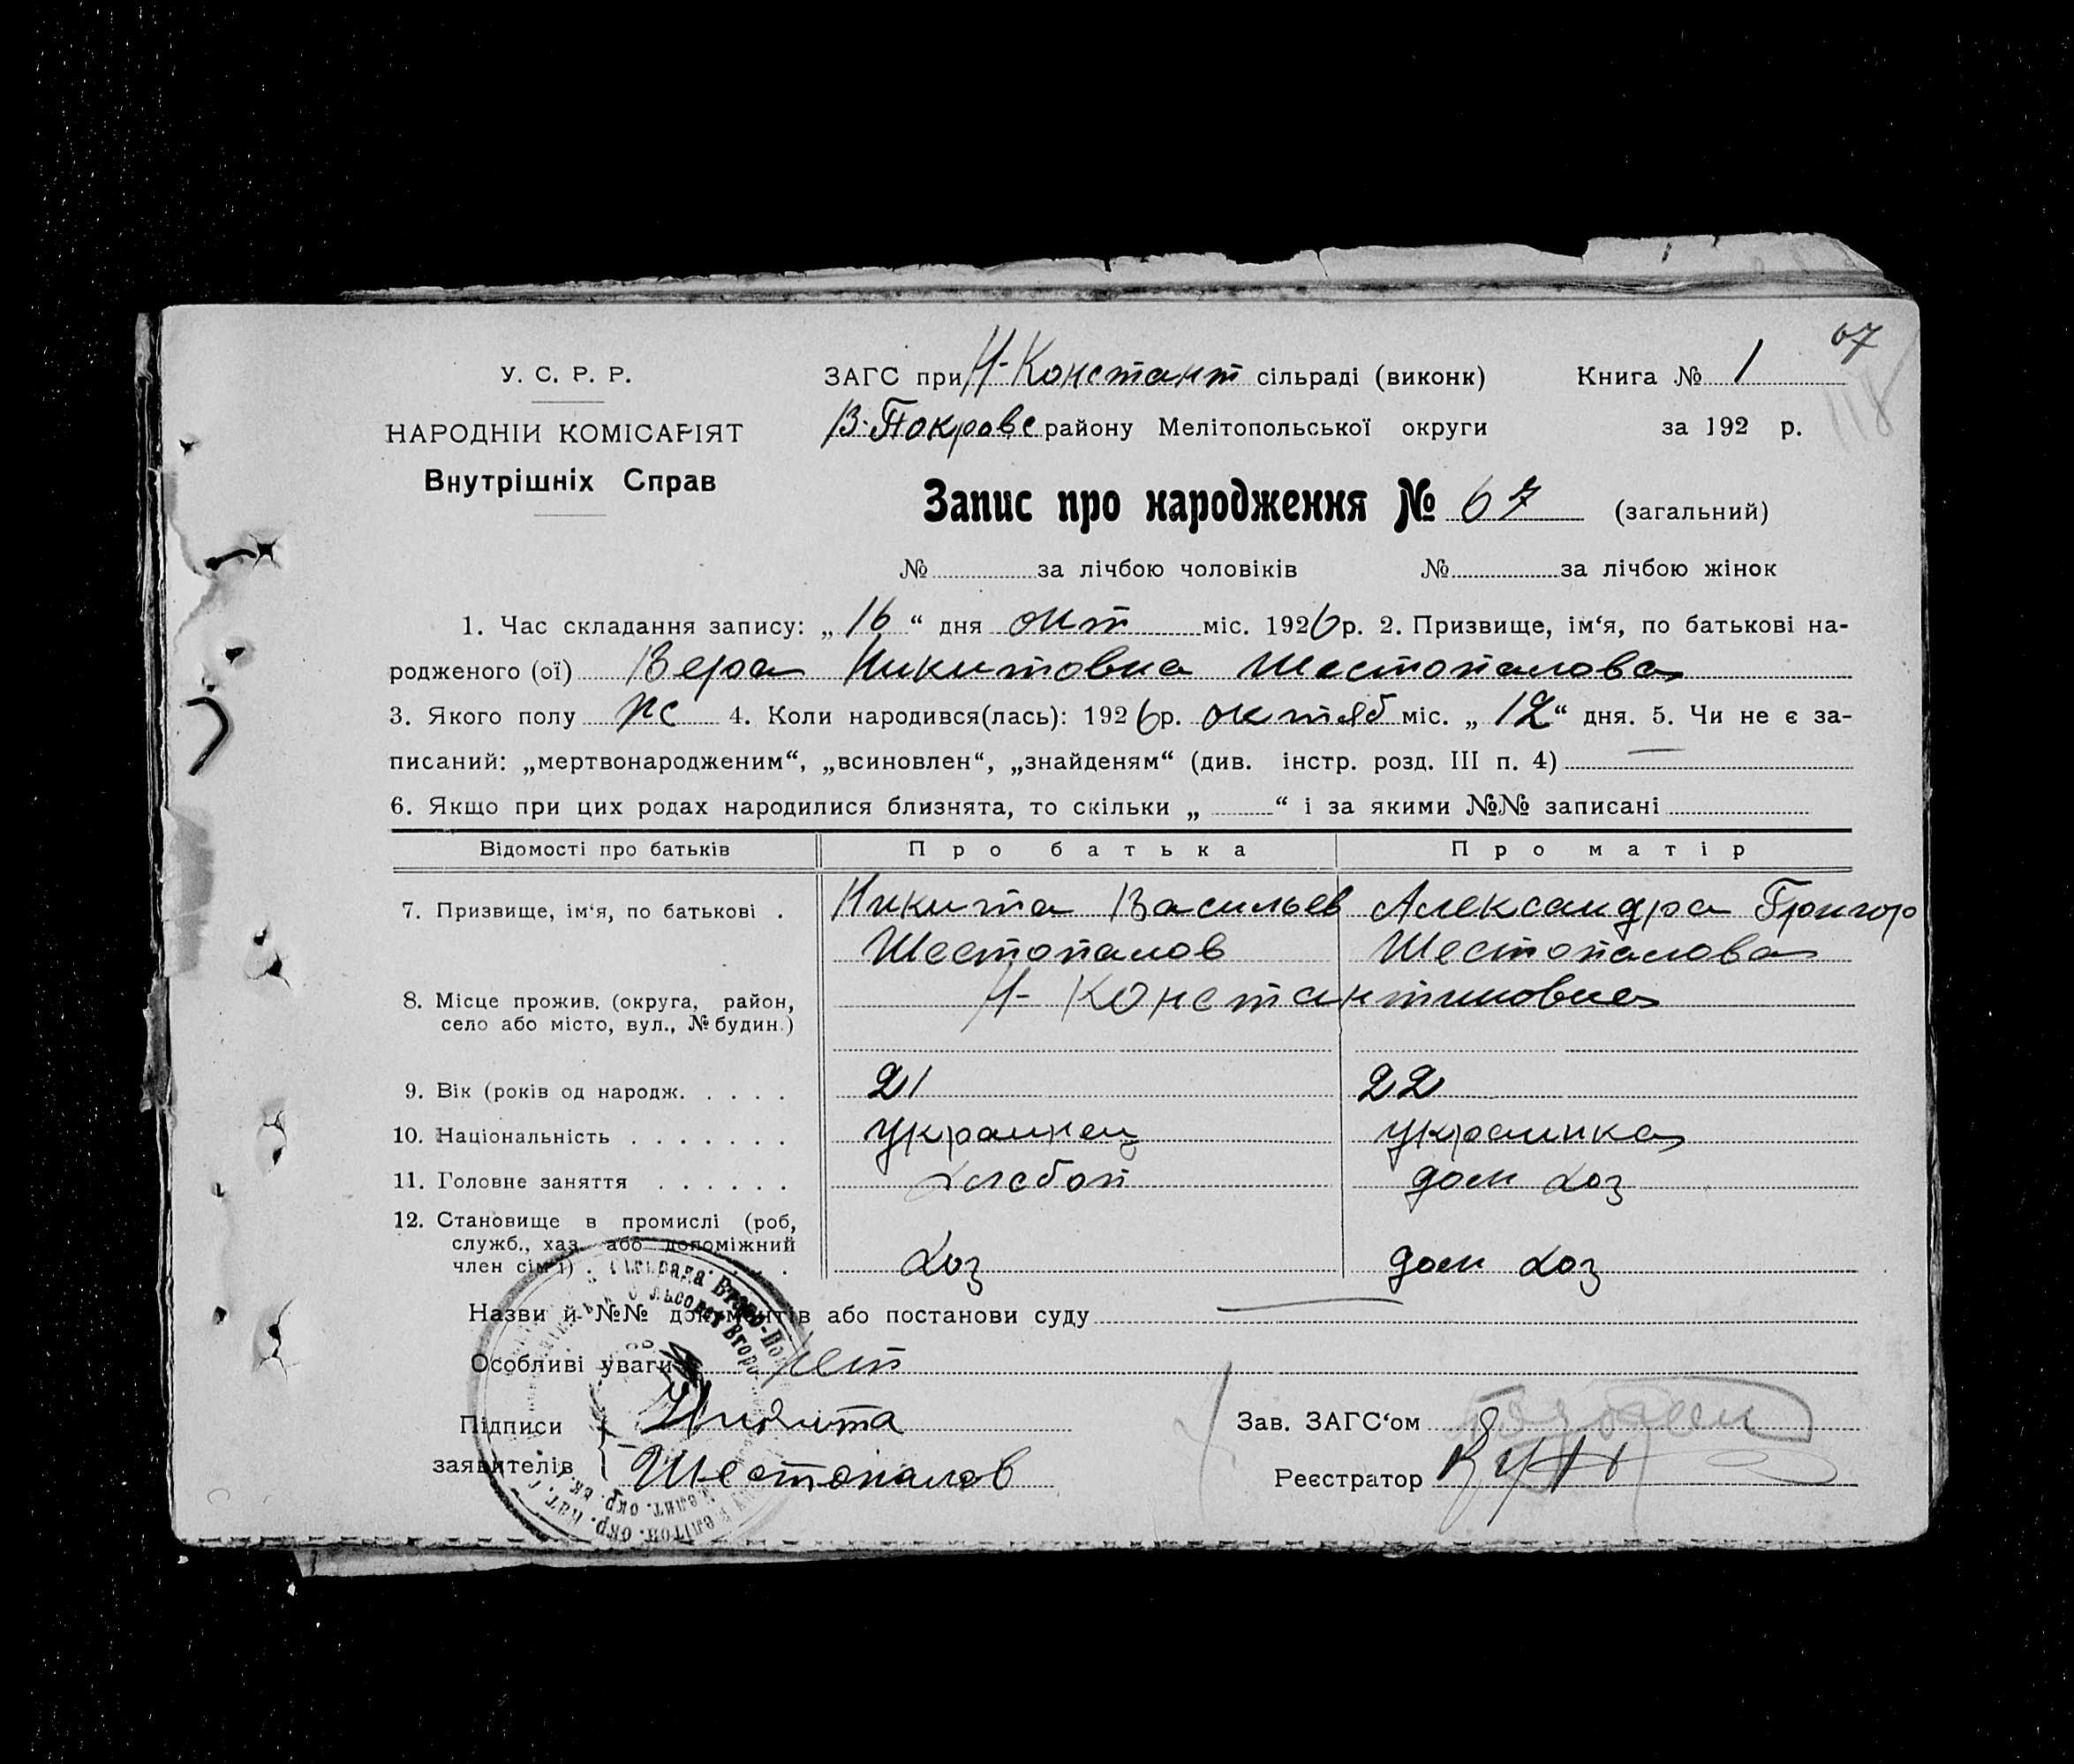 67
118
У. С. Р. Р.
НАРОДНІЙ КОМІСАРІЯТ
Внутрішніх Справ
ЗАГС при Н-Констант сільраді (виконк) Книга № 1
В-Покровс району Мелітопольської округи за 192 р.
Запис про народження № 67 (загальний)
№ за лічбою чоловіків № за лічбою жінок
1. Час складання запису: „16“ дня окт міс. 1926 р. 2. Призвище, ім‘я, по батькові на-
родженого (ої) Вера Никитовна Шестопалова
3. Якого полу жс 4. Коли народився(лась): 1926 р. октяб міс. „12“ дня. 5. Чи не є за-
писаний: „мертвонародженим“, „всиновлен“, „знайденям“ (див. інстр. розд. III п. 4) —
6. Якщо при цих родах народилися близнята, то скільки „ “ і за якими №№ записані
Відомості про батьків Про батька Про матір
7. Призвище, ім‘я, по батькові . Никита Васильев Александра Григор
Шестопалов Шестопалова
8. Місце прожив. (округа, район, Н- Константиновка
село або місто, вул., № будин.)
9. Вік (років од народж. . . . . 21 22
10. Національність . . . . . . . украинец украинка
11. Головне заняття . . . . . . хлебоп дом хоз
12. Становище в промислі (роб,
служб., хаз. або допоміжний
член сім‘ї) . хоз дом хоз
Назви й №№ документів або постанови суду —
Особливі уваги нет
Підписи Никита Зав. ЗАГС‘ом
заявителів Шестопалов Реєстратор
Сільрада Второ-Пок
льсовет Второ
Меліт. окр.